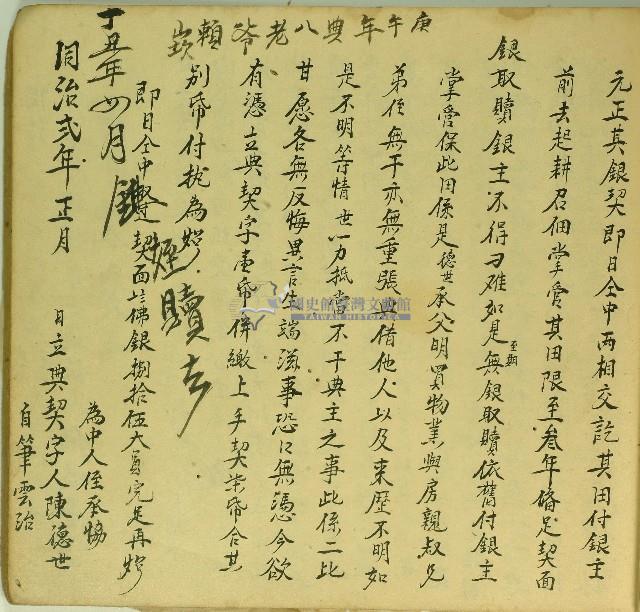 元正其銀契即日仝中兩相交訖其田付銀主
前去起耕召佃掌管其田限至叁年俻足契面
銀取贖銀主不得刁难如是至期無銀取贖依舊付銀主
掌管保此田係是德世承父明買物業與房親叔兄
弟侄無干亦無重張典借他人以及来歷不明如
是不明等情世一力抵當不干典主之事此係二比
甘愿各無反悔異言生端滋事恐口無憑今欲
有憑立典契字壹帋併繳上手契 帋合共
別帋付执為炤
即日仝中 契面 佛銀捌拾伍大員完足再炤
為中人侄承協
同治弍年正月 日立典契字人陳德世
自筆雲治
庚午年典八老爷賴崁
丁丑年四月 贖去
國史館臺灣文獻館
TAIWAN HISTORICA